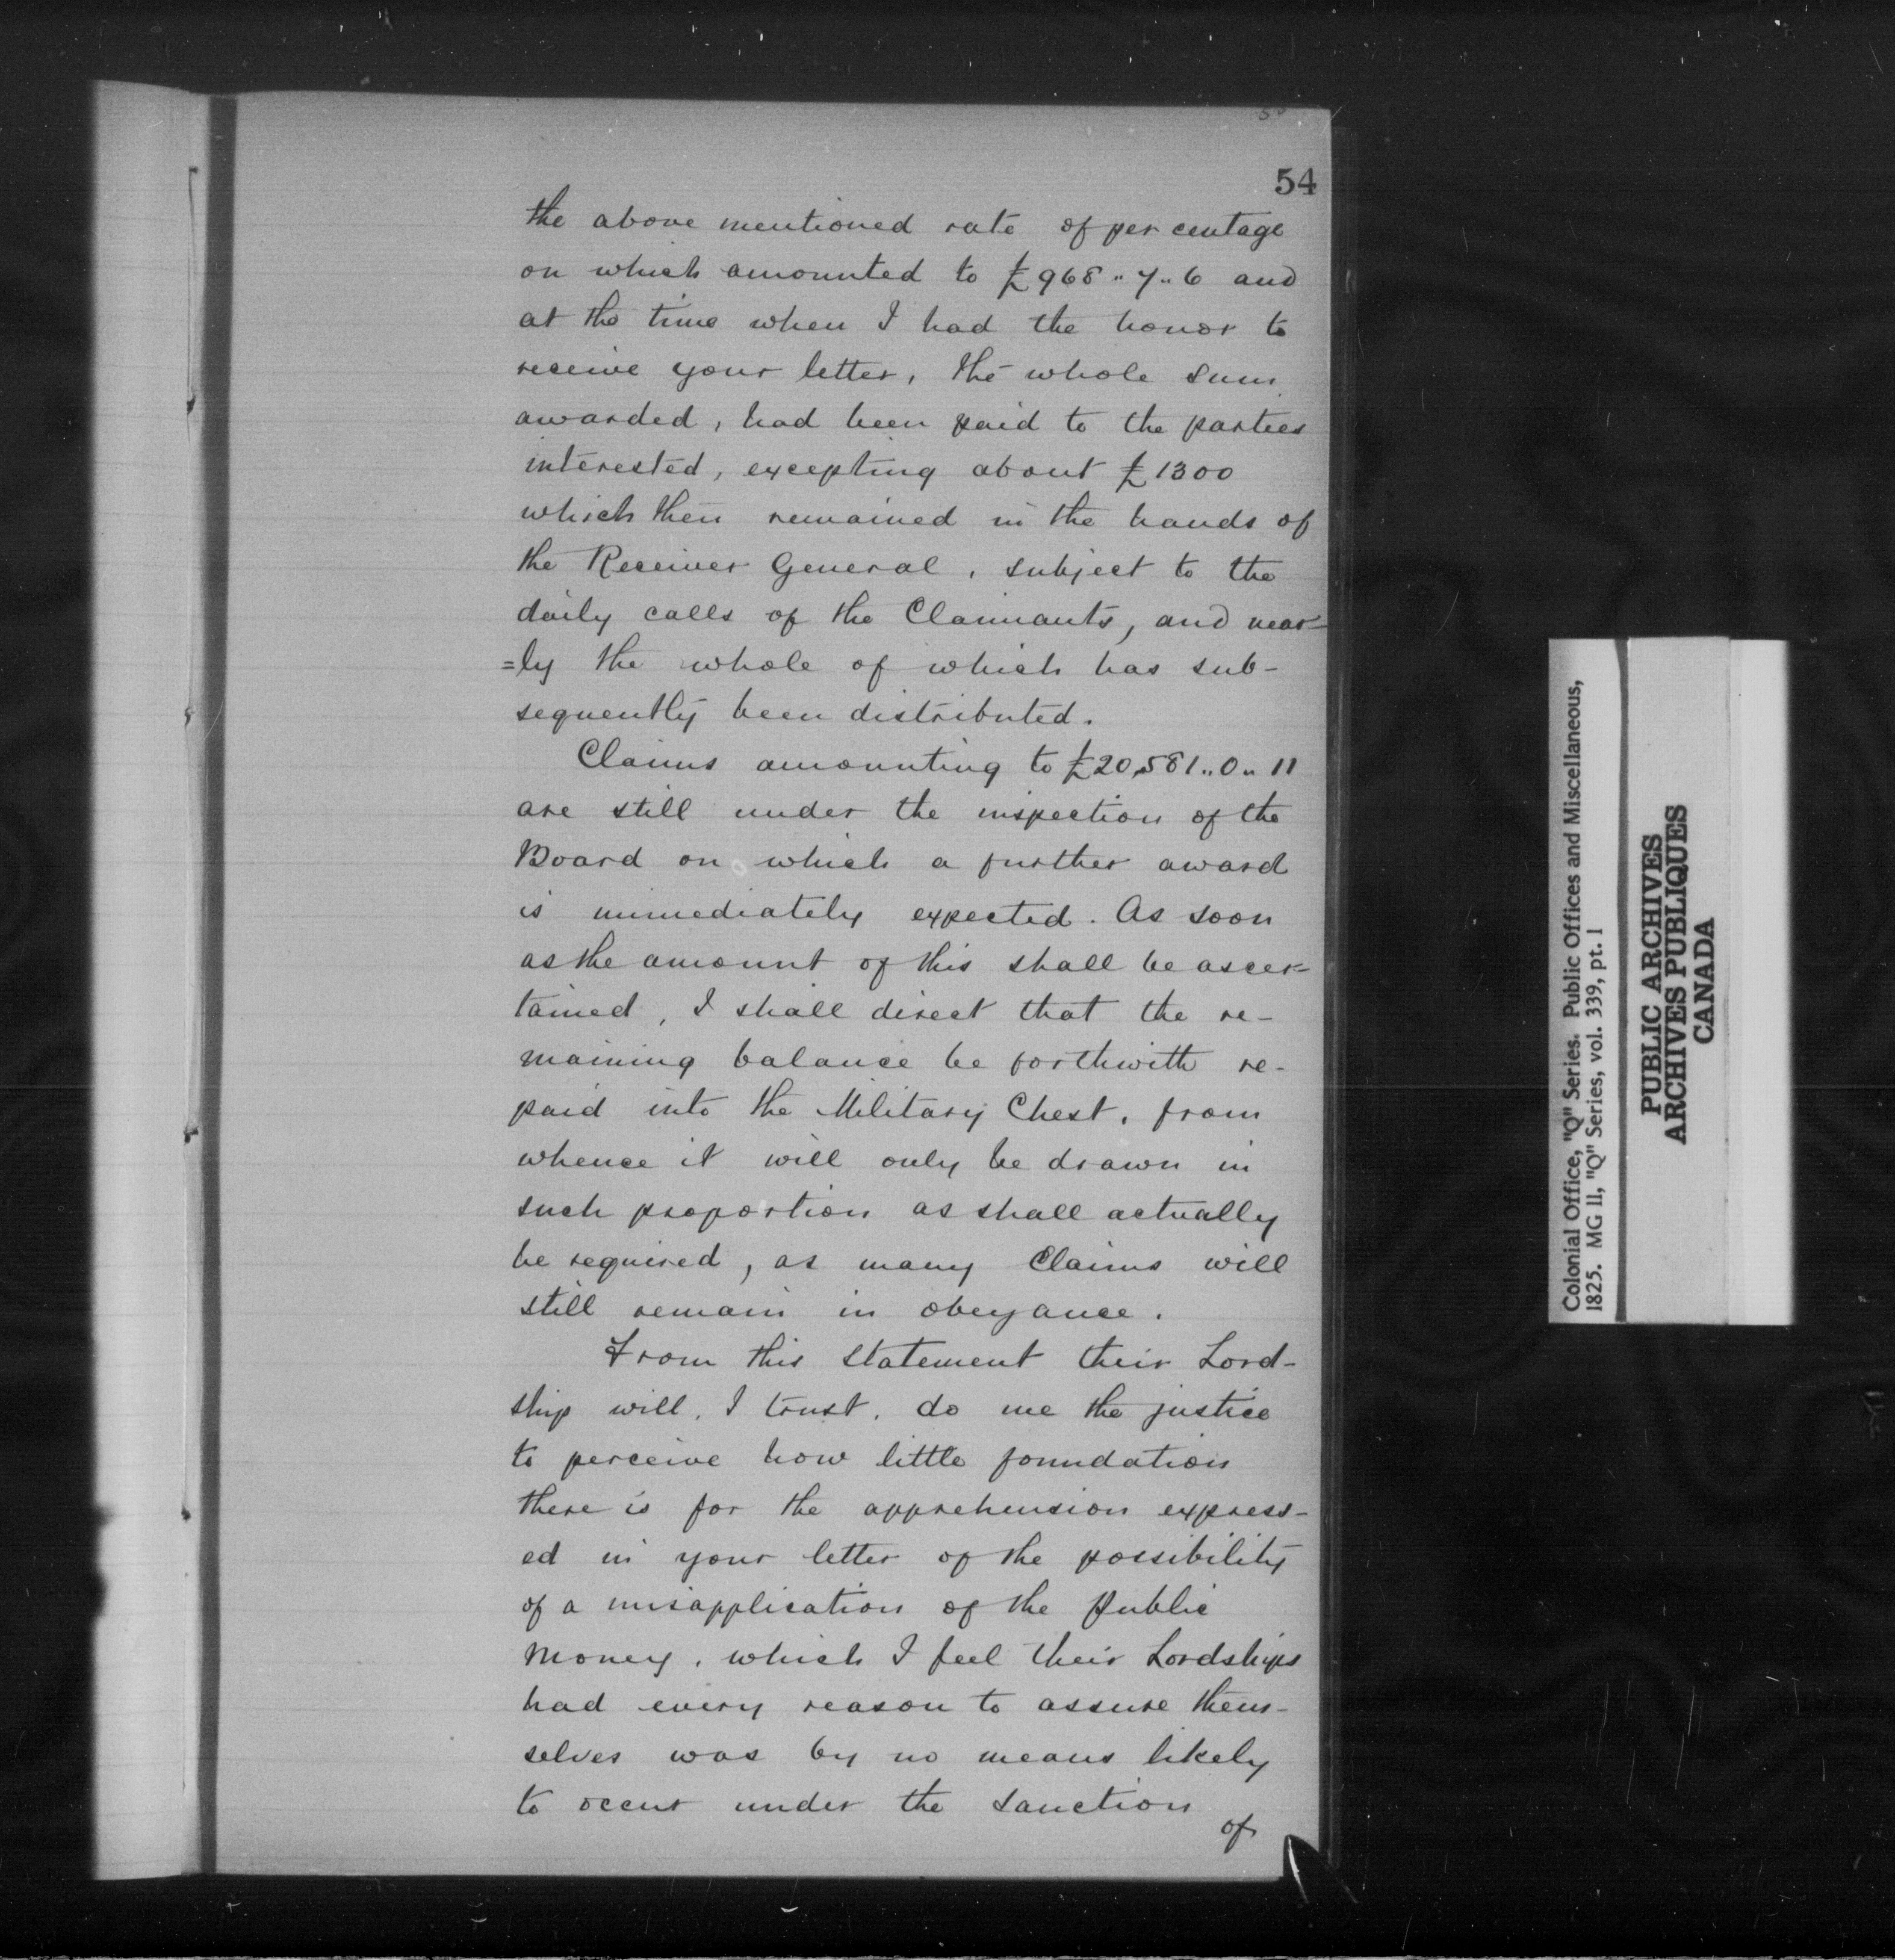 54
the above mentioned rate of per centage
on which amounted to £968.. 7.. 6 and
at the time when I had the honor to
receive your letter, the whole sum
awarded, had been paid to the parties
interested, excepting about £1300
which then remained in the hands of
the Receiver General, subject to the
daily calls of the Claimants, and near-
=ly the whole of which has sub-
sequently been distributed.
Claims amounting to £20,581.. 0.. 11
are still under the inspection of the
Board on which a further award
is immediately expected. As soon
as the amount of this shall be ascer-
tained, I shall direct that the re-
maining balance be forthwith re-
paid into the Military Chest, from
whence it will only be drawn in
such proportion as shall actually
be required, as many Claims will
still remain in obeyance.
From this statement their Lord-
ship will, I trust, do me the justice
to perceive how little foundation
there is for the apprehension express-
ed in your letter of the possibility
of a misapplication of the Public
Money, which I feel their Lordships
had every reason to assure them-
selves was by no means likely
to occur under the sanction
of
Colonial Office, "Q" Series. Public Offices and Miscellaneous,
1825. MG 11, "Q" Series, vol. 339, pt. 1
PUBLIC ARCHIVES
ARCHIVES PUBLIQUES
CANADA